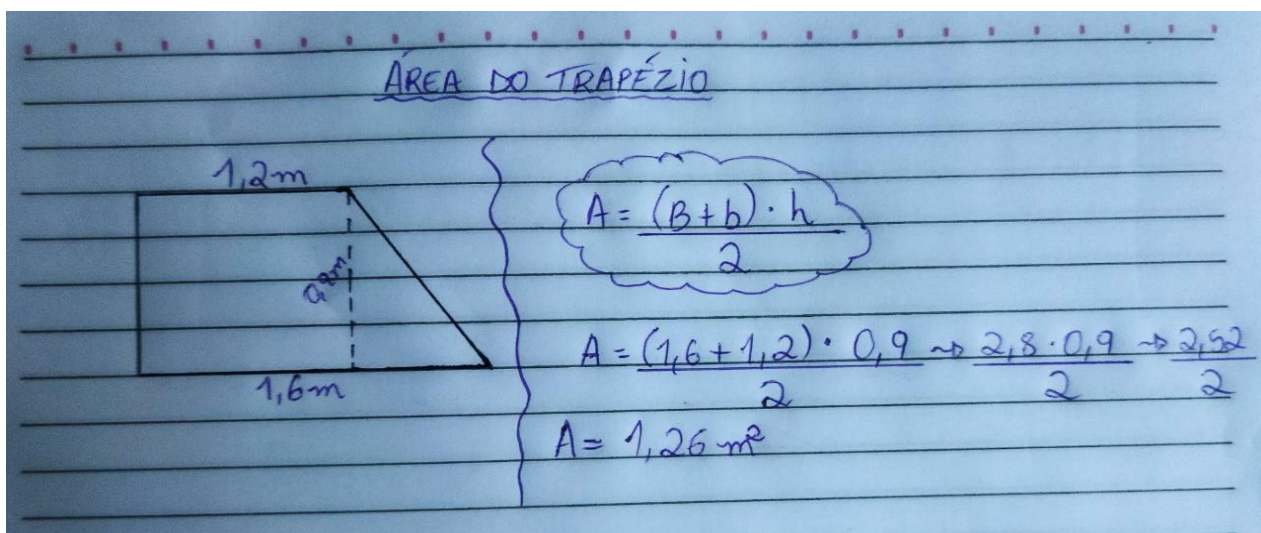 ÁREA DO TRAPÉZIO
1,2m
0,9m
1,6m
A = (B+b) · h
2
A = (1,6 + 1,2) · 0,9 ⇝ 2,8 · 0,9 ⇝ 2,52
2 2 2
A = 1,26 m²